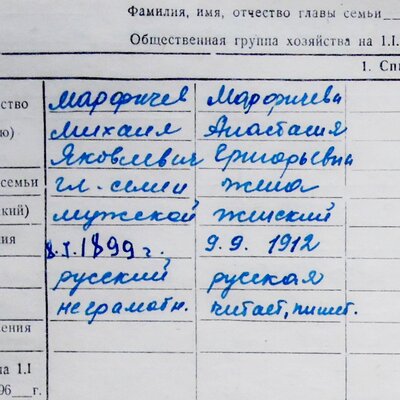 Фамилия, имя, отчество главы семьи
Общественная группа хозяйства на 1.I.
1. Спи
ство Марфичев Марфичева
ю) Михаил Анастасия
Яковлевич Григорьевна
семьи гл. семьи жена
кий) мужской женский
ния 8.I.1899г. 9.9. 1912
русский русская
неграмотн. читает, пишет.
ения
на 1.I
96 г.